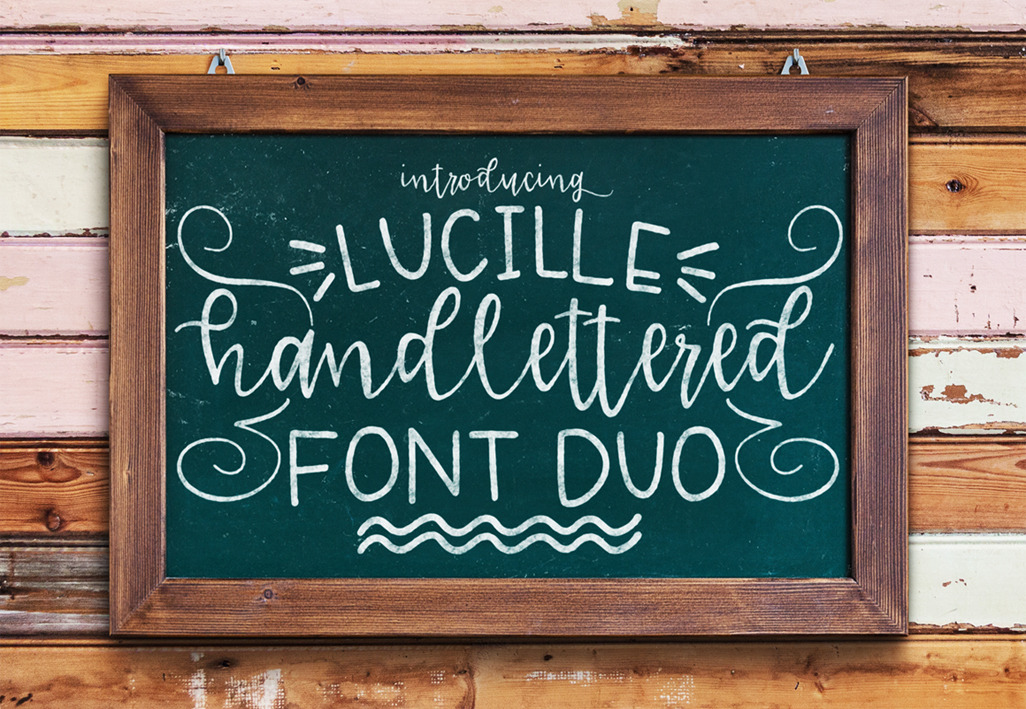 introducing
LUCILLE
handlettered
FONT DUO